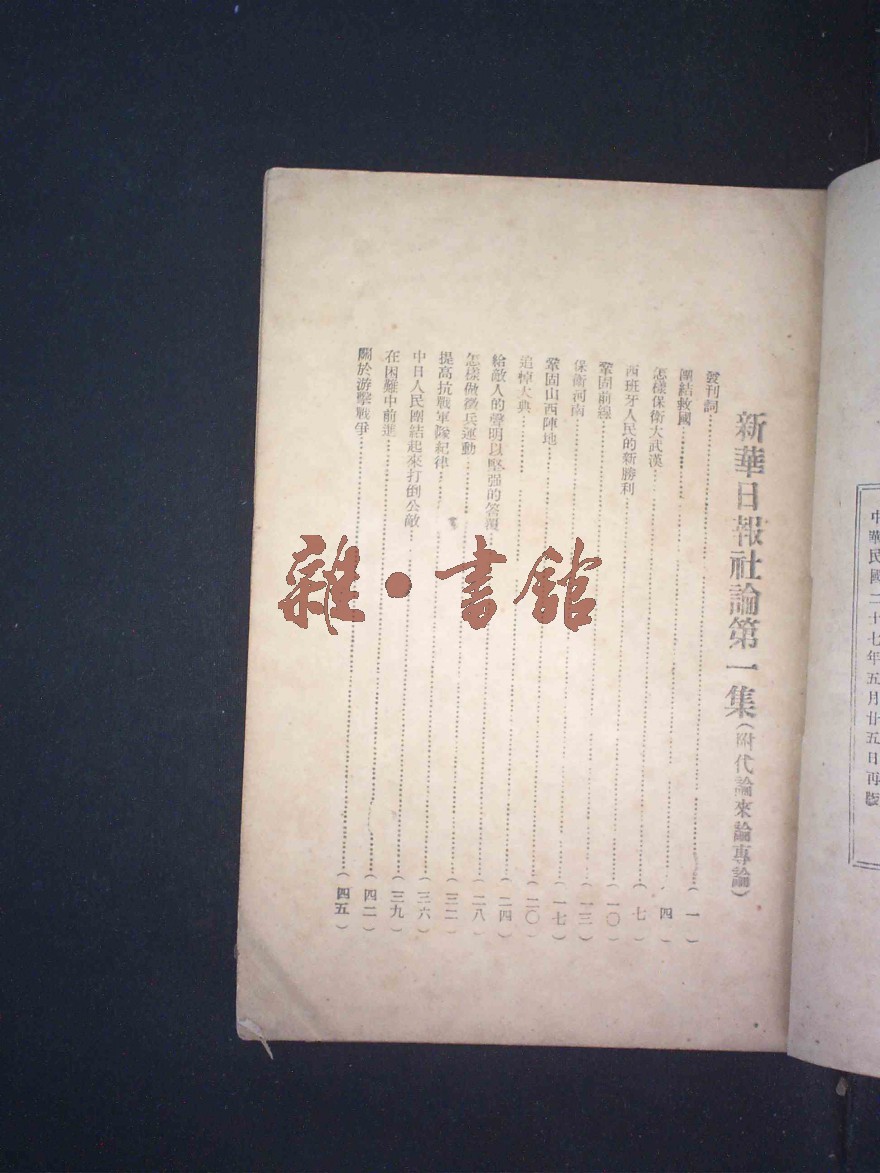 中華民國二十七年五月廿五日再版
新華日報社論第一集(附代論來論專論)
發刊詞……(一)
團結救國……(四)
怎樣保衛大武漢……(七)
西班牙人民的新勝利……(一〇)
鞏固前線……(一三)
保衛河南……(一七)
鞏固山西陣地……(二〇)
追悼大典……(二四)
給敵人的聲明以堅强的答覆……(二八)
怎樣做徵兵運動……(三二)
提高抗戰軍隊紀律……(三六)
中日人民團結起來打倒公敵……(三九)
在困難中前進……(四二)
關於游擊戰爭……(四五)
雜•書館